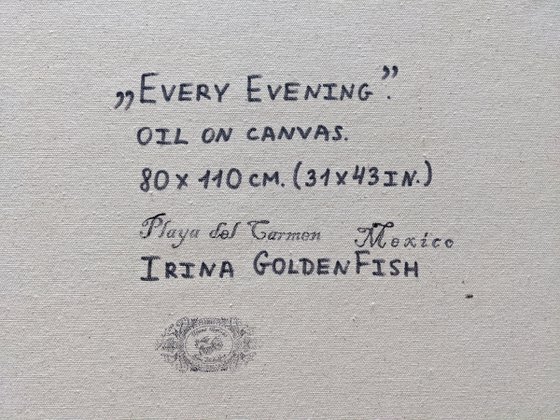 „Every Evening”.
oil on canvas.
80 x 110 cm. (31x43in.)
Playa del Carmen Mexico
Irina GoldenFish